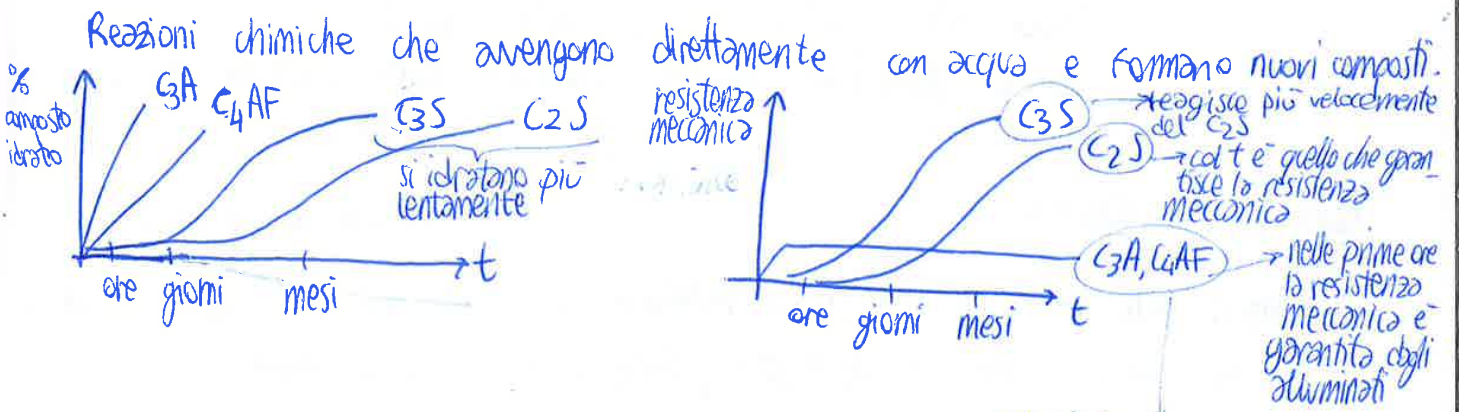 Reazioni chimiche che avvengono direttamente con acqua e formano nuovi composti.
%
composto
idrato
C3A
C4AF
C3S
C2S
si idratano più
lentamente
ore giorni mesi t
resistenza
meccanica
C3S → reagisce più velocemente
del C2S
C2S → col t è quello che garan_
tisce la resistenza
meccanica
C3A, C4AF → nelle prime ore
la resistenza
meccanica è
garantita dagli
alluminati
ore giorni mesi t